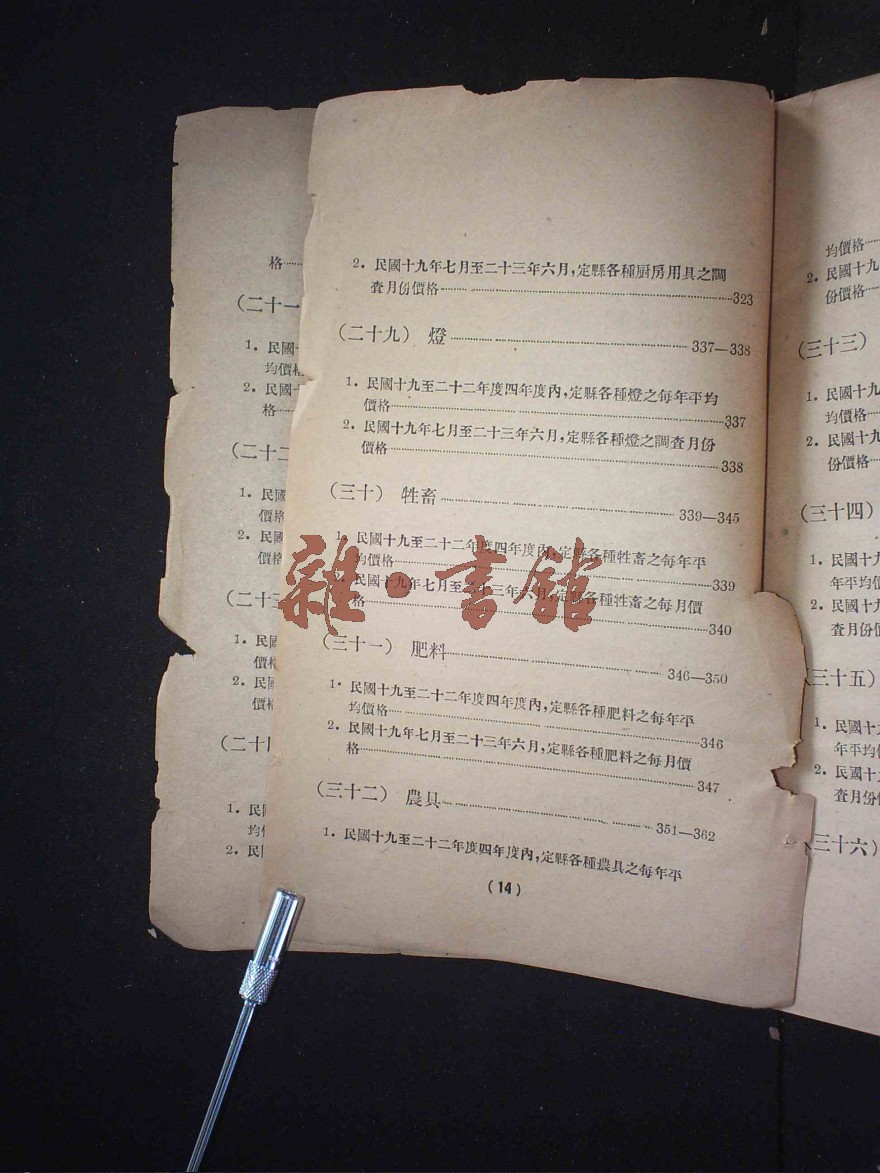 格……
(二十一
1. 民國十
均價格
2. 民國十
格……
(二十二
1. 民國
價格
2. 民國
價格
(二十三
1. 民國
價格
2. 民國
價格
(二十
1. 民
均
2. 民
2. 民國十九年七月至二十三年六月,定縣各種厨房用具之調
查月份價格……323
(二十九) 燈……337—338
1. 民國十九至二十二年度四年度內,定縣各種燈之每年平均
價格……337
2. 民國十九年七月至二十三年六月,定縣各種燈之調查月份
價格……338
(三十) 牲畜……339—345
1. 民國十九至二十二年度四年度內,定縣各種牲畜之每年平
均價格……339
2. 民國十九年七月至二十三年六月,定縣各種牲畜之每月價
格……340
(三十一) 肥料……346—350
1. 民國十九至二十二年度四年度內,定縣各種肥料之每年平
均價格……346
2. 民國十九年七月至二十三年六月,定縣各種肥料之每月價
格……347
(三十二) 農具……351—362
1. 民國十九至二十二年度四年度內,定縣各種農具之每年平
(14)
均價格……
2. 民國十九
份價格……
(三十三)
1. 民國十九
均價格……
2. 民國十九
份價格……
(三十四)
1. 民國十九
年平均價
2. 民國十九
查月份價
(三十五)
1. 民國十
年平均價
2. 民國十
查月份價
(三十六)
雜·書館